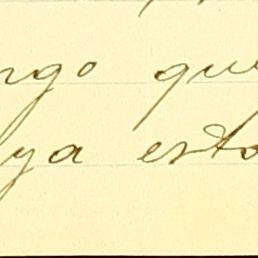 ngo que
ya esto